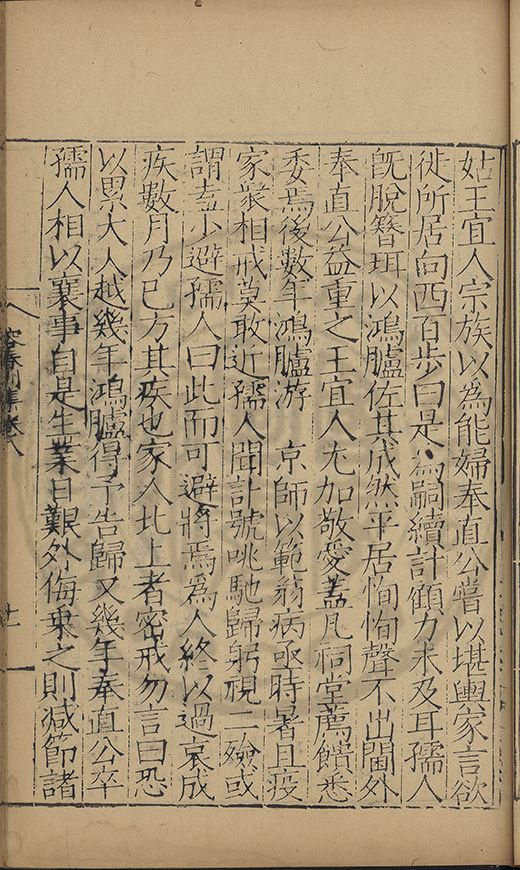 姑王宜人宗族以為能婦奉直公嘗以堪輿家言欲
徙所居向西百步曰是為嗣續計顧力未及耳孺人
旣脫簪珥以鴻臚佐其成然平居恂恂聲不出閫外
奉直公益重之王宜人尤加敬愛蓋凡祠堂薦饋悉
委焉後數年鴻臚游　京師以範翁病亟時暑且疫
家衆相戒莫敢近孺人聞訃號咷馳歸躬視二殮或
謂盍少避孺人曰此而可避將焉為人終以過哀成
疾數月乃已方其疾也家人北上者密戒勿言曰恐
以累大人越幾年鴻臚得予告歸又幾年奉直公卒
孺人相以襄事自是生業日艱外侮乗之則减節諸
卷八
十一